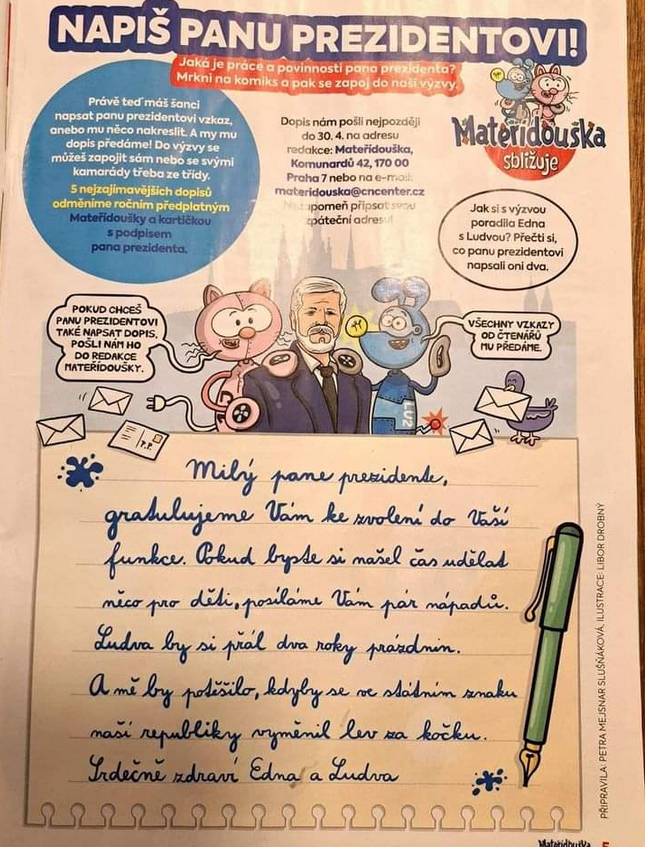 NAPIŠ PANU PREZIDENTOVI!
Jaká je práce a povinnosti pana prezidenta?
Mrkni na komiks a pak se zapoj do naší výzvy.
Právě teď máš šanci
napsat panu prezidentovi vzkaz,
anebo mu něco nakreslit. A my mu
dopis předáme! Do výzvy se
můžeš zapojit sám nebo se svými
kamarády třeba ze třídy.
5 nejzajímavějších dopisů
odměníme ročním předplatným
Mateřídoušky a kartičkou
s podpisem
pana prezidenta.
Dopis nám pošli nejpozději
do 30. 4. na adresu
redakce: Mateřídouška,
Komunardů 42, 170 00
Praha 7 nebo na e-mail:
materidouska@cncenter.cz
Nezapomeň připsat svou
zpáteční adresu!
Mateřídouška
sbližuje
Jak si s výzvou
poradila Edna
s Ludvou? Přečti si,
co panu prezidentovi
napsali oni dva.
POKUD CHCEŠ
PANU PREZIDENTOVI
TAKÉ NAPSAT DOPIS,
POŠLI NÁM HO
DO REDAKCE
MATEŘÍDOUŠKY.
VŠECHNY VZKAZY
OD ČTENÁŘŮ
MU PŘEDÁME.
Milý pane prezidente,
gratulujeme Vám ke zvolení do Vaší
funkce. Pokud byste si našel čas udělat
něco pro děti, posíláme Vám pár nápadů.
Ludva by si přál dva roky prázdnin.
A mě by potěšilo, kdyby se ve státním znaku
naší republiky vyměnil lev za kočku.
Srdečně zdraví Edna a Ludva
PŘIPRAVILA: PETRA MEJSNAR SLUŠŇÁKOVÁ, ILUSTRACE: LIBOR DROBNÝ
Mateřídouška 5